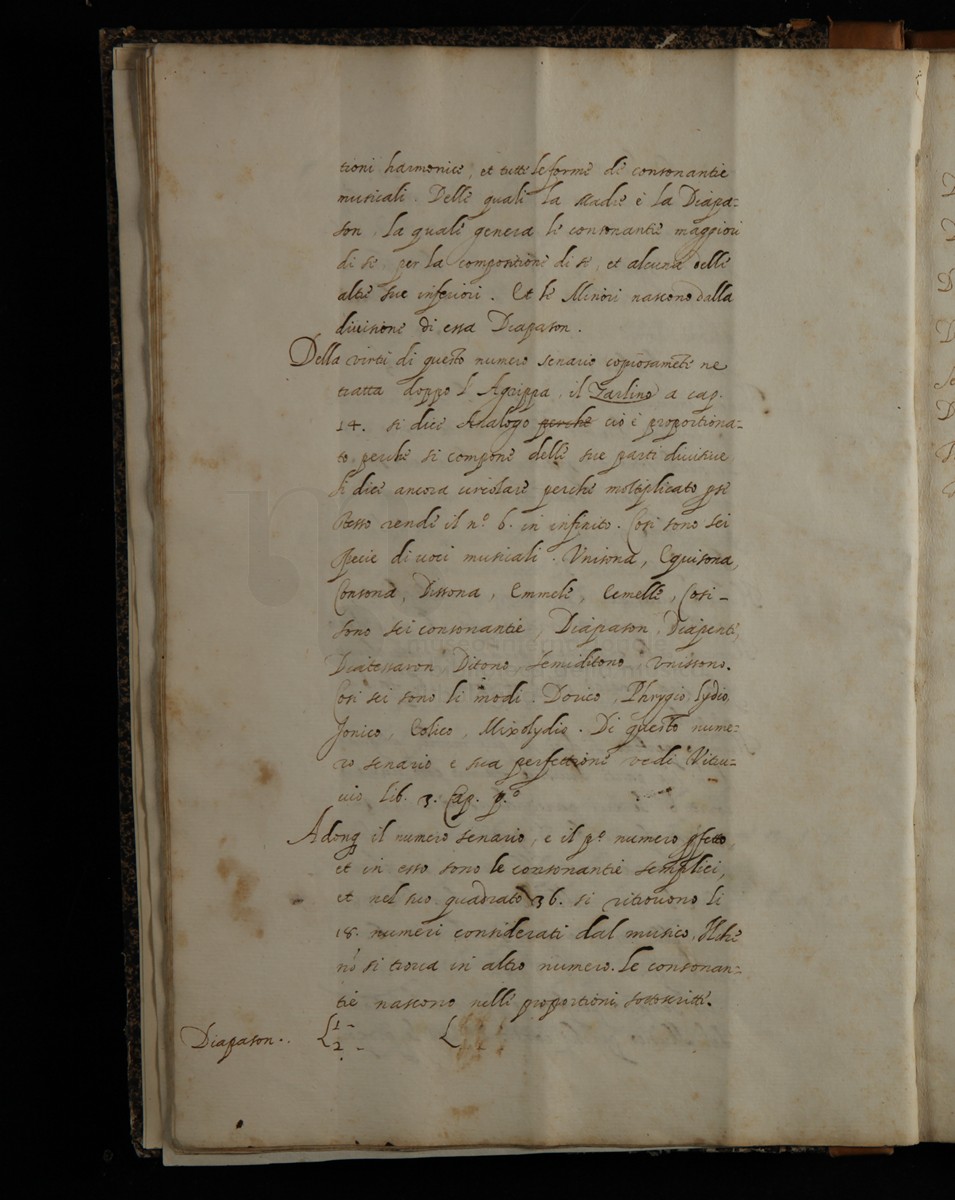 tioni harmonice, et tutte le forme di consonantie
musicali. Delle quali la Madre è la Diapa-
son, la quale genera le consonantie maggiori
di se, per la compositione di se, et alcuna delle
altre sue inferiori. Et le Minori nascono dalla
divisione di essa Diapason.
Della virtù di questo numero senario copiosamēte ne
tratta doppo l'Agrippa, il Zarlino a cap.
14. si dice Analogo perche cio è proportiona-
to perche si compone delle sue parti divisive
si dice ancora circolare perche moltiplicato p se
stesso rende il nº 6. in infinito. Cosi sono sei
specie di voci musicali. Unisona, Equisona,
Consona, Dissona, Emmele, Ecmelle, Cosi-
sono sei consonantie, Diapason, Diapente,
Diatessaron, Ditono, Semiditono, Unissono.
Cosi sei sono li modi. Dorico, Phrygio, Lydio,
Jonico, Eolico, Mixolydio. Di questo nume-
ro senario e sua perfettione vedi Vitru-
vio lib. 3. Cap. pº
Adonq il numero senario, e il pº numero pfetto,
et in esso sono le consonantie semplici,
et nel suo quadrato 36. si ritrovono li
18. numeri considerati dal musico, Il che
nō si trova in altro numero. Le consonan-
tie nascono nelle proportioni sottoscritte.
Diapason.. 1 -
2 -